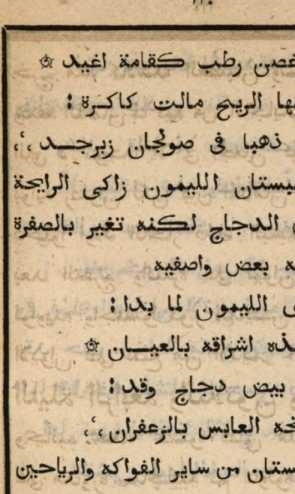 غصن رطب ككقامة اغيد ۞
ها الريح مالت كاكرة :
ذهبا فى صولجان زبرجد ،،
بستان الليمون زاكى الرايحة
الدجاج لكنه تغير بالصفرة
ه بعض واصفيه
الليمون لما بدا :
ذه اشراقه بالعيان ۞
بيض دجاج وقد :
خه العابس بالزعفران ،،
ستان من ساير الفواكه والرياحين